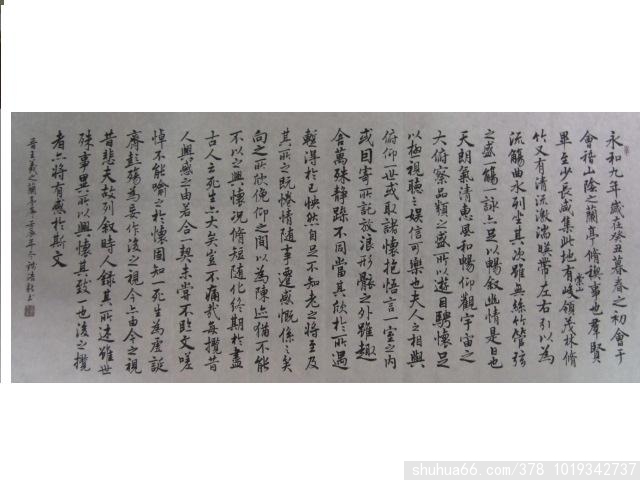 永和九年歲在癸丑暮春之初會于
會稽山陰之蘭亭脩禊事也群賢
畢至少長咸集此地有崇山峻領茂林脩
竹又有清流激湍暎帶左右引以為
流觴曲水列坐其次雖無絲竹管弦
之盛一觴一詠亦足以暢敘幽情是日也
天朗氣清惠風和暢仰觀宇宙之
大俯察品類之盛所以遊目騁懷足
以極視聽之娛信可樂也夫人之相與
俯仰一世或取諸懷抱悟言一室之內
或因寄所託放浪形骸之外雖趣
舍萬殊靜躁不同當其欣於所遇
蹔得於己怏然自足不知老之將至及
其所之既惓情隨事遷感慨係之矣
向之所欣俛仰之間以為陳迹猶不能
不以之興懷況脩短隨化終期於盡
古人云死生亦大矣豈不痛哉每攬昔
人興感之由若合一契未嘗不臨文嗟
悼不能喻之於懷固知一死生為虛誕
齊彭殤為妄作後之視今亦由今之視
昔悲夫故列敘時人錄其所述雖世
殊事異所以興懷其致一也後之攬
者亦將有感於斯文
晉王羲之蘭亭序 年冬 書
shuhua66.com/378 1019342737